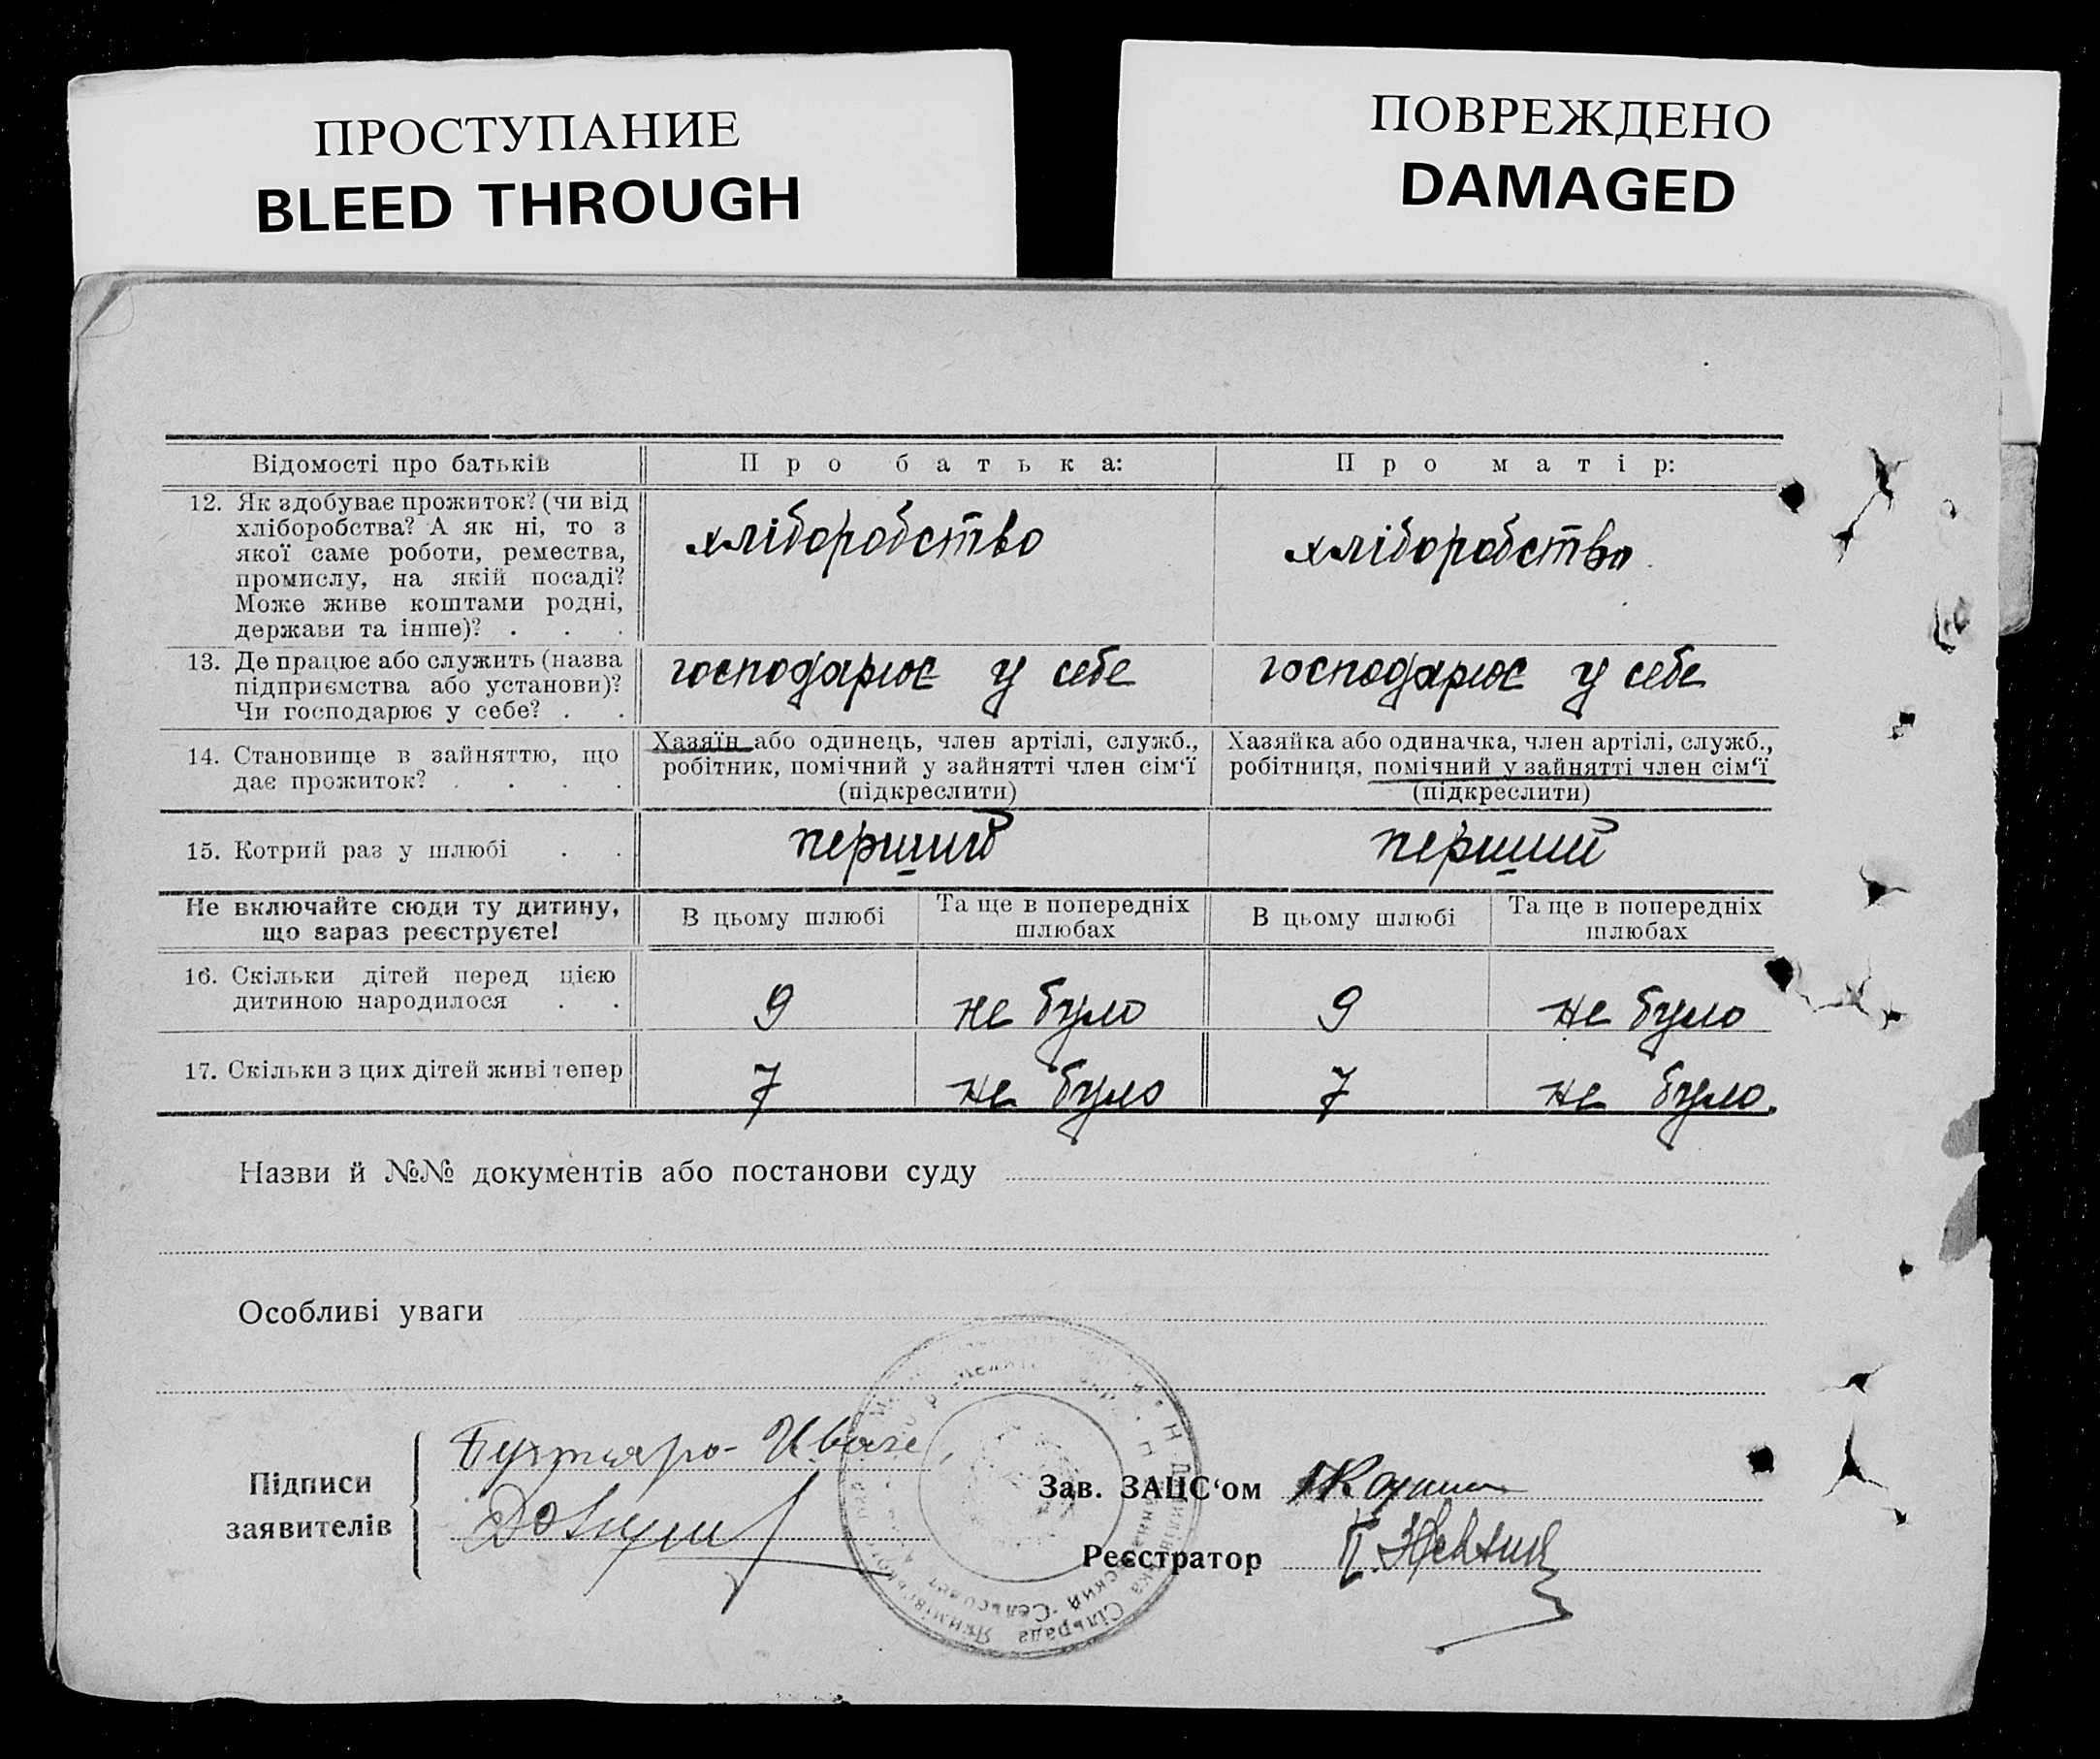 ПРОСТУПАНИЕ
BLEED THROUGH
ПОВРЕЖДЕНО
DAMAGED
Відомості про батьків
Про батька:
Про матір:
12. Як здобуває прожиток? (чи від
хліборобства? А як ні, то з
якої саме роботи, ремества,
промислу, на якій посаді?
Може живе коштами родні,
держави та інше)? . . .
хліборобство
хліборобство
13. Де працює або служить (назва
підприємства або установи)?
Чи господарює у себе? . .
господарює у себе
господарює у себе
14. Становище в зайняттю, що
дає прожиток? . . . .
Хазяїн або одинець, член артілі, служб.,
робітник, помічний у зайнятті член сім‘ї
(підкреслити)
Хазяйка або одиначка, член артілі, служб.,
робітниця, помічний у зайнятті член сім‘ї
(підкреслити)
15. Котрий раз у шлюбі . .
перший
перший
Не включайте сюди ту дитину,
що зараз реєструєте!
В цьому шлюбі
Та ще в попередніх
шлюбах
В цьому шлюбі
Та ще в попередніх
шлюбах
16. Скільки дітей перед цією
дитиною народилося . .
9
не було
9
не було
17. Скільки з цих дітей живі тепер
7
не було
7
не було.
Назви й №№ документів або постанови суду
Особливі уваги
Підписи
заявителів
Зав. ЗАЦС‘ом
Реєстратор
Сільрада
Сельсовет